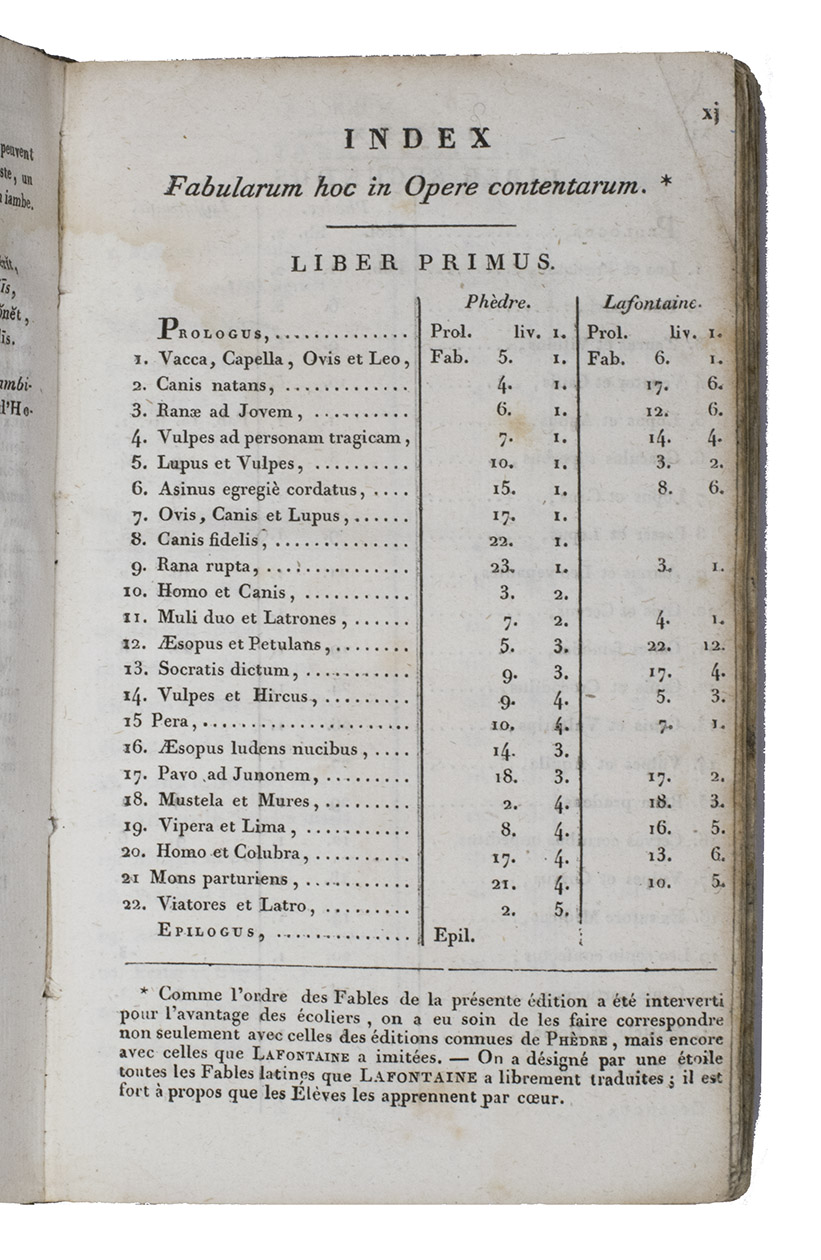 peuvent
ste, un
iambe.
īs,
nĕt,
īs.
ambi-
l'Ho-
xj
INDEX
Fabularum hoc in Opere contentarum. *
LIBER PRIMUS.
Phèdre. Lafontaine.
PROLOGUS, .............. Prol. liv. 1. Prol. liv. 1.
1. Vacca, Capella, Ovis et Leo, Fab. 5. 1. Fab. 6. 1.
2. Canis natans, ............. 4. 1. 17. 6.
3. Ranæ ad Jovem, .......... 6. 1. 12. 6.
4. Vulpes ad personam tragicam, 7. 1. 14. 4.
5. Lupus et Vulpes, .......... 10. 1. 3. 2.
6. Asinus egregiè cordatus, .... 15. 1. 8. 6.
7. Ovis, Canis et Lupus, ...... 17. 1.
8. Canis fidelis, .............. 22. 1.
9. Rana rupta, ............... 23. 1. 3. 1.
10. Homo et Canis, ........... 3. 2.
11. Muli duo et Latrones, ...... 7. 2. 4. 1.
12. Æsopus et Petulans, ........ 5. 3. 22. 12.
13. Socratis dictum, ........... 9. 3. 17. 4.
14. Vulpes et Hircus, .......... 9. 4. 5. 3.
15 Pera, ...................... 10. 4. 7. 1.
16. Æsopus ludens nucibus, .... 14. 3.
17. Pavo ad Junonem, ......... 18. 3. 17. 2.
18. Mustela et Mures, ......... 2. 4. 18. 3.
19. Vipera et Lima, ........... 8. 4. 16. 5.
20. Homo et Colubra, .......... 17. 4. 13. 6.
21 Mons parturiens, ........... 21. 4. 10. 5.
22. Viatores et Latro, ......... 2. 5.
EPILOGUS, .............. Epil.
* Comme l'ordre des Fables de la présente édition a été interverti
pour l'avantage des écoliers, on a eu soin de les faire correspondre
non seulement avec celles des éditions connues de PHÈDRE, mais encore
avec celles que LAFONTAINE a imitées. — On a désigné par une étoile
toutes les Fables latines que LAFONTAINE a librement traduites; il est
fort à propos que les Élèves les apprennent par cœur.